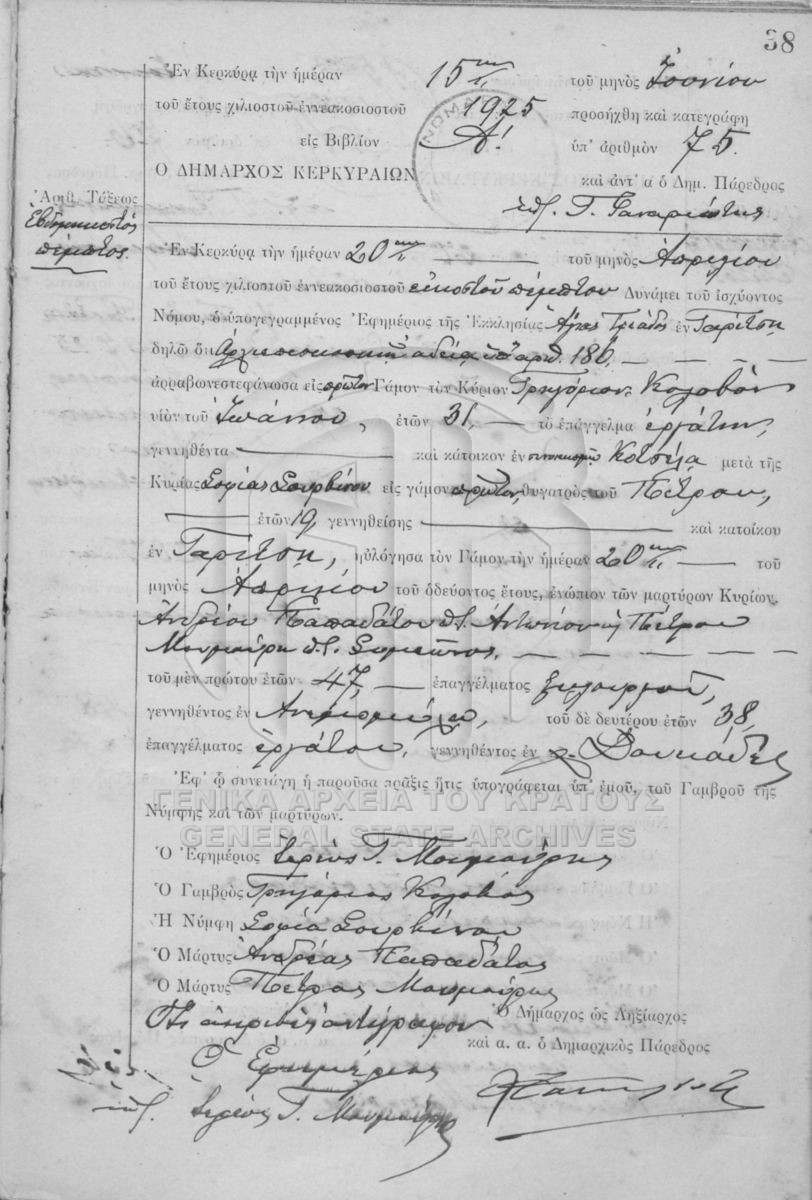 38
Ἐν Κερκύρᾳ τὴν ἡμέραν 15ην τοῦ μηνὸς Ἰουνίου
τοῦ ἔτους χιλιοστοῦ ἐννεακοσιοστοῦ 1925 προσήχθη καὶ κατεγράφη
εἰς Βιβλίον Α! ὑπ' ἀριθμὸν 75.
Ο ΔΗΜΑΡΧΟΣ ΚΕΡΚΥΡΑΙΩΝ
καὶ ἀντ' α ὁ Δημ. Πάρεδρος
Ἀριθ. Τάξεως
Ἑβδομηκοστός
πέμπτος.
Ἐν Κερκύρᾳ τὴν ἡμέραν 20ην τοῦ μηνὸς Ἀπριλίου
τοῦ ἔτους χιλιοστοῦ ἐννεακοσιοστοῦ εἰκοστοῦ πέμπτου Δυνάμει τοῦ ἰσχύοντος
Νόμου, ὁ ὑπογεγραμμένος Ἐφημέριος τῆς Ἐκκλησίας Ἁγίας Τριάδος ἐν Γαρίτσῃ
δηλῶ ὅτι Ἀρχιεπισκοπικῇ ἀδείᾳ ὑπ' ἀριθ. 186.
ἀρραβωνεστεφάνωσα εἰς πρῶτον Γάμον τὸν Κύριον Γρηγόριον Κολοβὸν
υἱὸν τοῦ Ἰωάννου, ἐτῶν 31, τὸ ἐπάγγελμα ἐργάτην,
γεννηθέντα καὶ κάτοικον ἐν συνοικισμῷ Κοτσέλα μετὰ τῆς
Κυρίας Σοφίας Σουρβίνου εἰς γάμον πρῶτον, θυγατρὸς τοῦ Πέτρου,
ἐτῶν 19, γεννηθείσης καὶ κατοίκου
ἐν Γαρίτσῃ, ηὐλόγησα τὸν Γάμον τὴν ἡμέραν 20ην τοῦ
μηνὸς Ἀπριλίου τοῦ ὁδεύοντος ἔτους, ἐνώπιον τῶν μαρτύρων Κυρίων,
Ἀνδρέου Παπαδάτου Ἀντωνίου Πέτρου
Μουμούρη
τοῦ μὲν πρώτου ἐτῶν 47, ἐπαγγέλματος ξυλουργοῦ,
γεννηθέντος ἐν τοῦ δὲ δευτέρου ἐτῶν 38,
ἐπαγγέλματος ἐργάτου, γεννηθέντος ἐν χ. Δουκάδες
Ἐφ' ᾧ συνετάγη ἡ παροῦσα πρᾶξις ἥτις ὑπογράφεται ὑπ' ἐμοῦ, τοῦ Γαμβροῦ τῆς
Νύμφης καὶ τῶν μαρτύρων.
ΓΕΝΙΚΑ ΑΡΧΕΙΑ ΤΟΥ ΚΡΑΤΟΥΣ
GENERAL STATE ARCHIVES
Ὁ Ἐφημέριος Ἱερεὺς Γ. Μουμούρης
Ὁ Γαμβρὸς Γρηγόριος Κολοβὸς
Ἡ Νύμφη Σοφία Σουρβίνου
Ὁ Μάρτυς Ἀνδρέας Παπαδάτος
Ὁ Μάρτυς Πέτρος Μουμούρης
Ὅτι ἀκριβὲς ἀντίγραφον
Ὁ Ἐφημέριος
Ἱερεὺς Γ. Μουμούρης
Ὁ Δήμαρχος ὡς Ληξίαρχος
καὶ α. α. ὁ Δημαρχικὸς Πάρεδρος